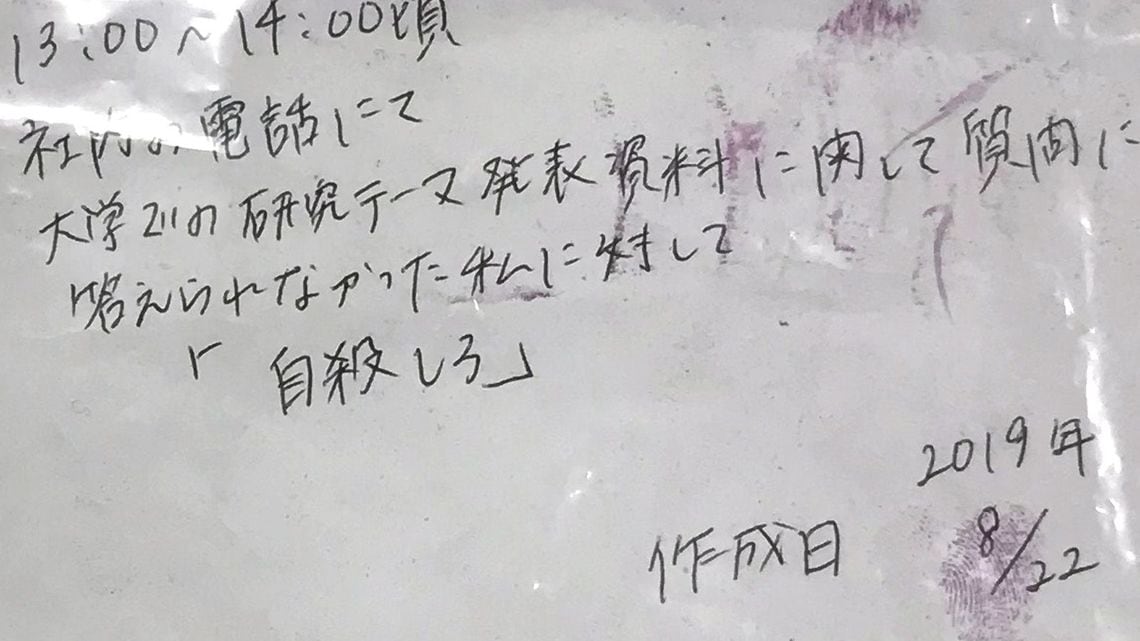 13:00～14:00頃
社内の電話にて
大学での研究テーマ発表資料に関して質問に
答えられなかった私に対して
「自殺しろ」
2019年
作成日 8/22